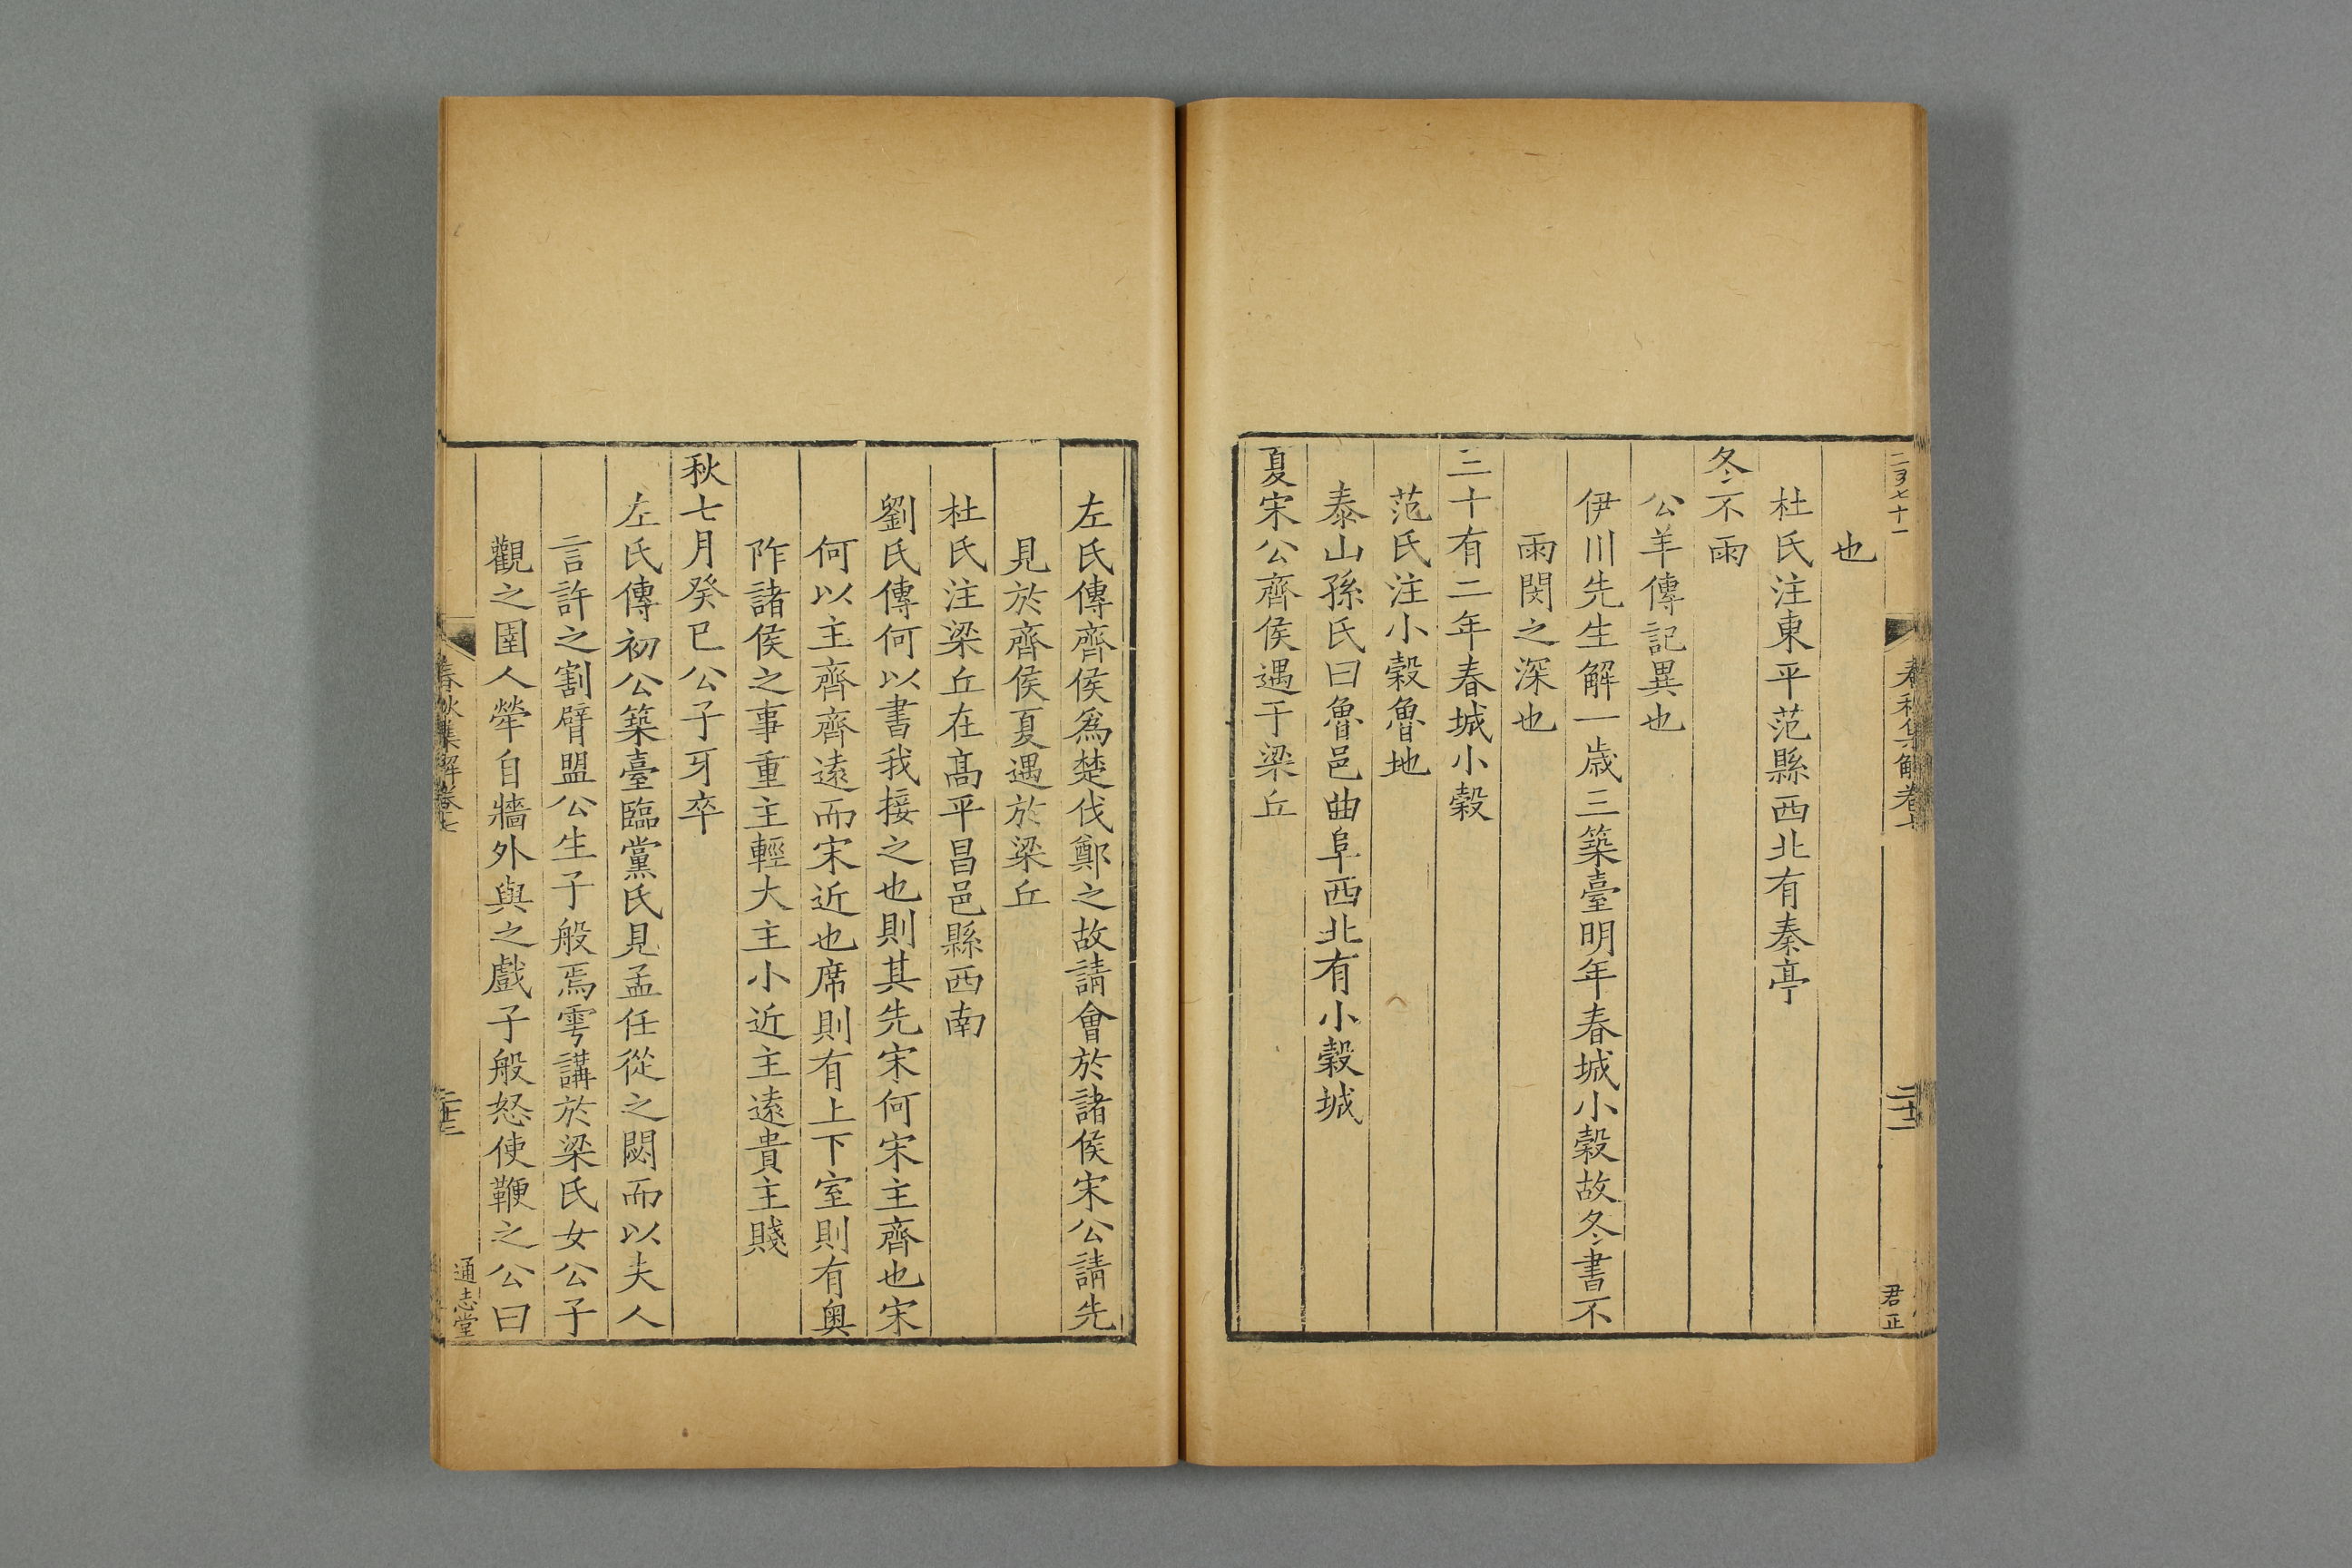 二百七十一
春秋集解卷七
二十二
君正
也
杜氏注東平范縣西北有秦亭
冬不雨
公羊傳記異也
伊川先生解一歲三築臺明年春城小穀故冬書不
雨閔之深也
三十有二年春城小穀
范氏注小穀魯地
泰山孫氏曰魯邑曲阜西北有小穀城
夏宋公齊侯遇于梁丘
左氏傳齊侯爲楚伐鄭之故請會於諸侯宋公請先
見於齊侯夏遇於梁丘
杜氏注梁丘在高平昌邑縣西南
劉氏傳何以書我接之也則其先宋何宋主齊也宋
何以主齊齊遠而宋近也席則有上下室則有奧
阼諸侯之事重主輕大主小近主遠貴主賤
秋七月癸巳公子牙卒
左氏傳初公築臺臨黨氏見孟任從之閟而以夫人
言許之割臂盟公生子般焉雩講於梁氏女公子
觀之圉人犖自牆外與之戲子般怒使鞭之公曰
春秋集解卷七
二十三
通志堂